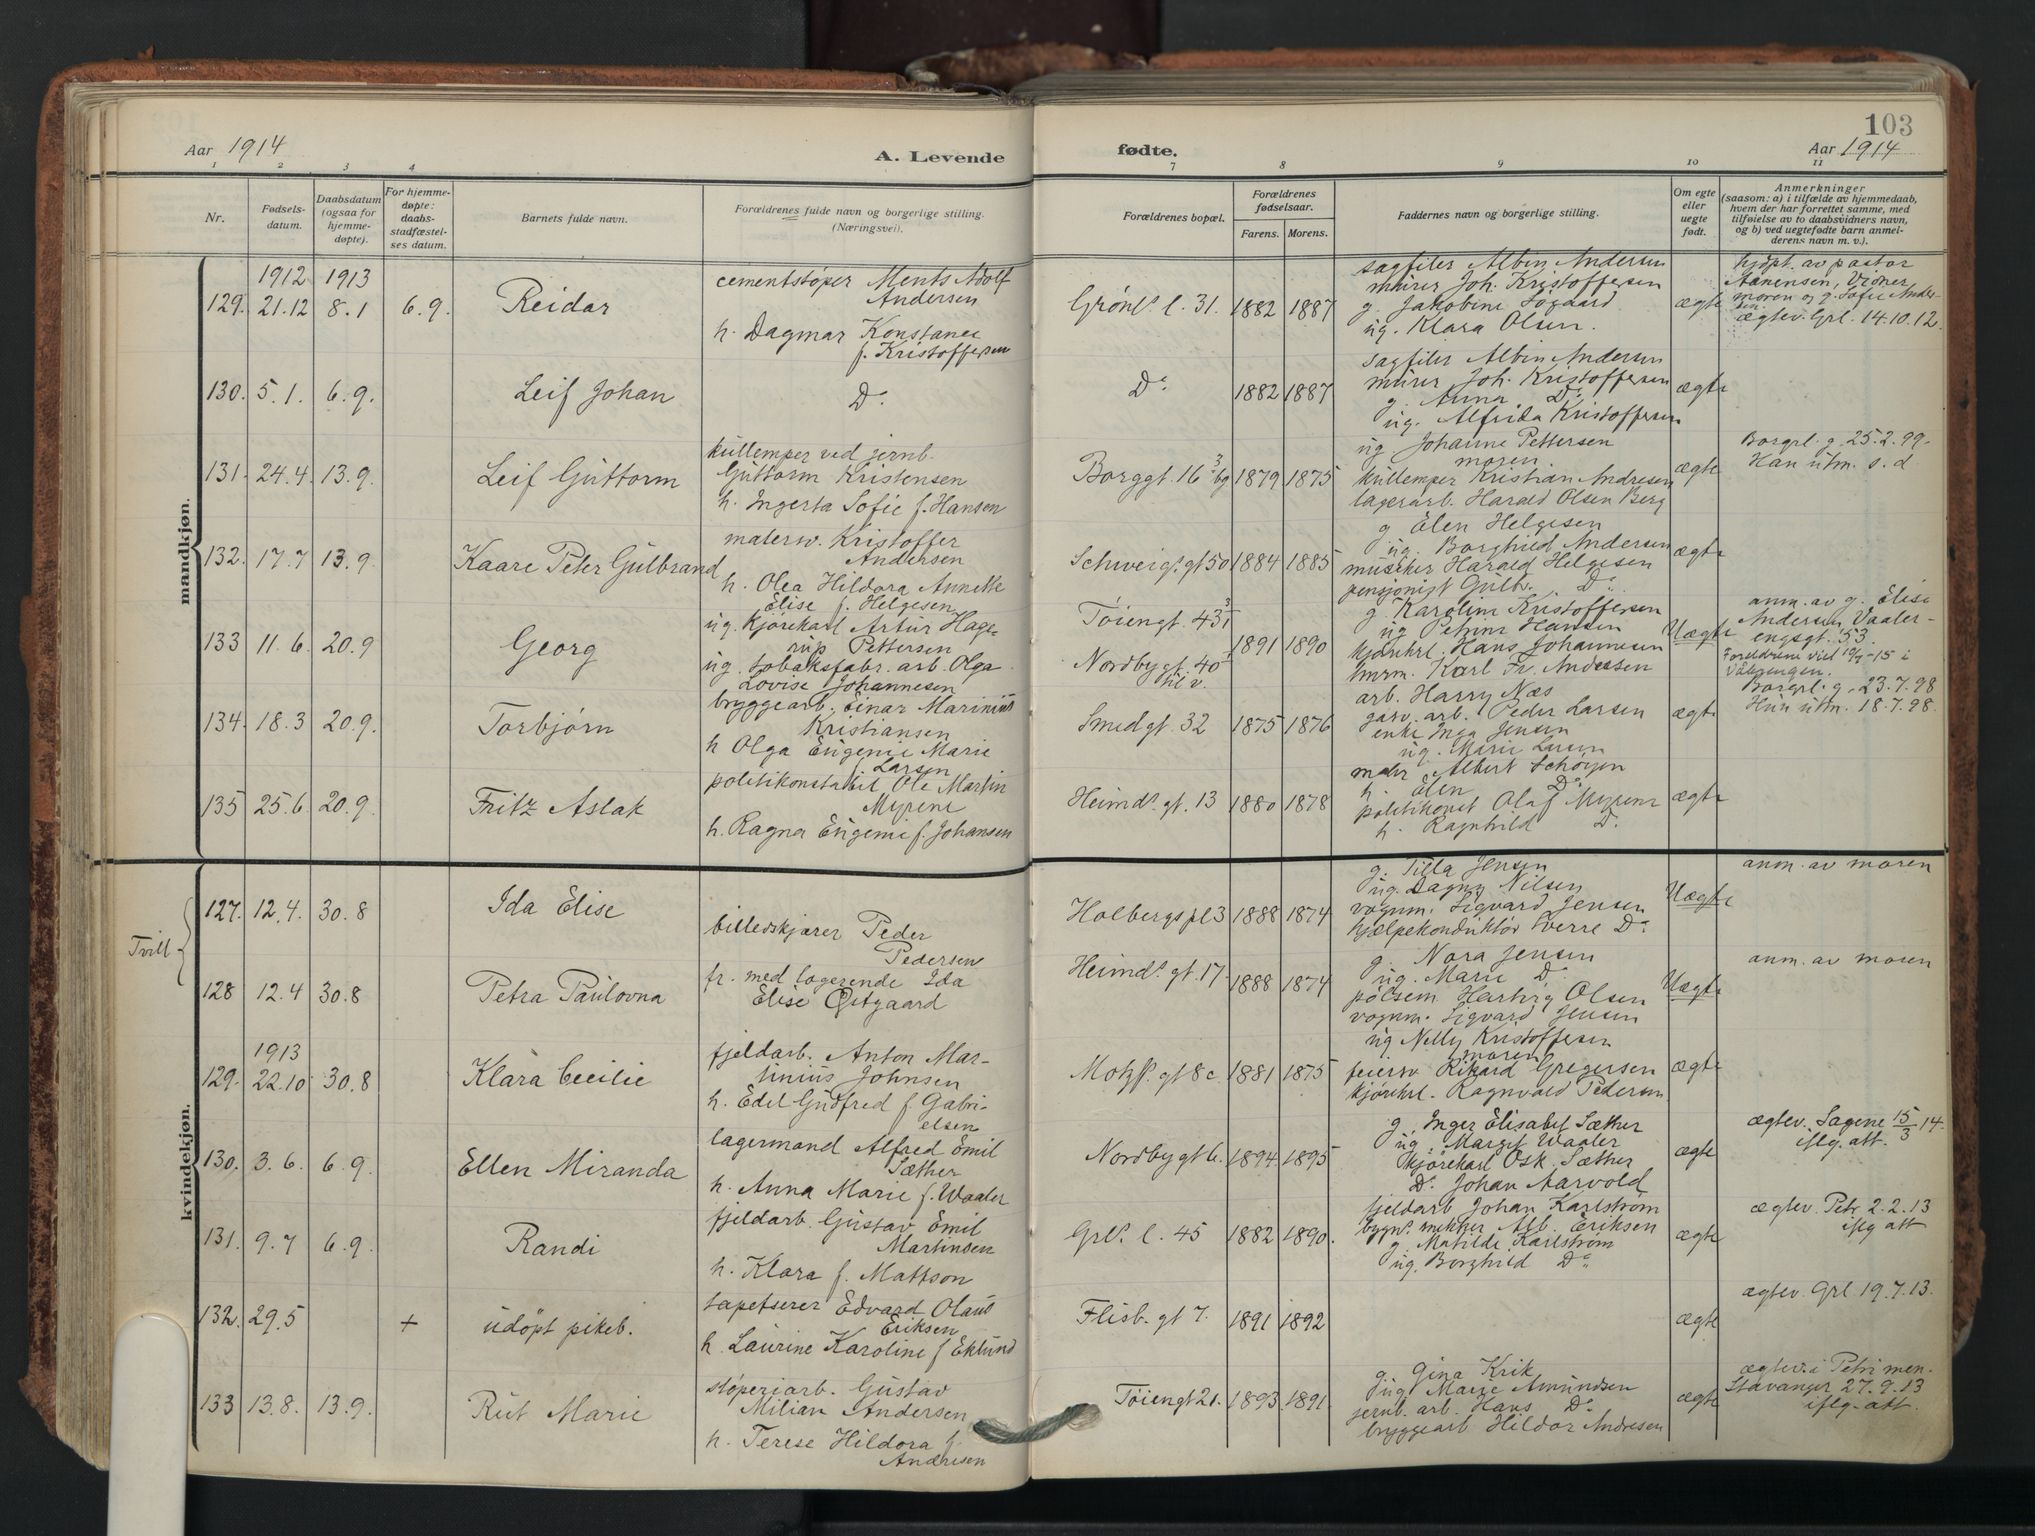 103
Aar 1914
A. Levende
fødte.
Aar 1914
1 2 3 4 7 8 9 10 11
Nr.
Fødsels-
datum.
Daabsdatum
(ogsaa for
hjemme-
døpte).
For hjemme-
døpte:
daabs-
stadfæstel-
ses datum.
Barnets fulde navn.
Forældrenes fulde navn og borgerlige stilling.
(Næringsvei).
Forældrenes bopæl.
Forældrenes
fødselsaar.
Farens. Morens.
Faddernes navn og borgerlige stilling.
Om egte
eller
uegte
født.
Anmerkninger
(saasom: a) i tilfælde av hjemmedaab,
hvem der har forrettet samme, med
tilføielse av to daabsvidners navn,
og b) ved uegtefødte barn anmel-
derens navn m. v.).
mandkjøn.
1912 1913
129. 21.12 8.1 6.9. Reidar
cementstøper Ments Adolf
Andersen
h. Dagmar Konstance
f. Kristoffersen
Grønl. l. 31. 1882 1887
sagfiler Albin Andersen
murer Joh. Kristoffersen
g. Jakobine Søgaard
ug. Klara Olsen.
ægte
hjdpt. av pastor
Aanensen, Vidner
moren og g. Sofie Ander-
sen
ægtev. Grl. 14.10.12.
130. 5.1. 6.9. Leif Johan
Do
Do 1882 1887
sagfiler Albin Andersen
murer Joh. Kristoffersen
g. Anna Do
ug. Alfrida Kristoffersen
ægte
131. 24.4. 13.9. Leif Guttorm
kullemper ved jernb.
Guttorm Kristensen
h. Ingerta Sofie f. Hansen
Borggt. 16 3 bg 1879 1875
ug Johanne Pettersen
moren
kullemper Kristian Andresen
lagerarb. Harald Olsen Berg
ægte
Borgrl. g. 25.2.99.
Han utm. s. d
132. 17.7 13.9. Kaare Peter Gulbrand
malersv. Kristoffer
Andersen
h. Olea Hildora Annette
Elise f. Helgesen
Schweigs. gt 50 1884 1885
g Elen Helgesen
ug. Borghild Andersen
musiker Harald Helgesen
pensjonist Gulb. Do
ægte
133 11.6. 20.9 Georg
ug. Kjørekarl Artur Hage-
rup Pettersen
ug. tobaksfabr. arb. Olga
Lovise Johannesen
Tøiengt. 43 3/1
Nordbygt. 40
til v.
1891 1890
g Karoline Kristoffersen
ug Petrine Hansen
kjørekrl. Hans Johannesen
tmrm. Karl Fr. Andersen
Uægte
anm. av g. Elise
Andersen, Vaaler-
engsgt. 53.
Foreldrene viet 10/7-15 i
Vålerengen.
134. 18.3 20.9. Torbjørn
bryggearb. Einar Marinius
Kristiansen
h Olga Eugenie Marie
f. Larsen
Smedgt. 32 1875 1876
arb. Harry Næs
gasv. arb. Peder Larsen
enke Inga Jensen
ug. Marie Larsen
ægte
Borgrl. g. 23.7.98
Hun utm. 18.7.98.
135 25.6 20.9. Fritz Aslak
politikonstabel Ole Martin
Myrene
h. Ragna Eugenie f. Johansen
Heimds. gt. 13 1880 1878
maler Albert Schøyen
h. Elen Do
politikonst Olaf Myrene
h. Ragnhild Do
ægte
kvindekjøn.
Tvill
127. 12.4. 30.8 Ida Elise
billedskjærer Peder
Pedersen
fr. med lagerende Ida
Elise Østgaard
Holbergspl 3 1888 1874
g. Tilla Jensen
ug. Dagny Nilsen
vognm. Sigvard Jensen
hjælpekonduktør Sverre Do
Uægte
anm. av moren
128 12.4 30.8 Petra Paulovna
Heimds. gt. 17. 1888 1874
g. Nora Jensen
ug. Marie Do
pølsem. Hartvig Olsen
vognm. Sigvard Jensen
Uægte
anm. av moren
1913
129. 22.10 30.8 Klara Cecilie
fjeldarb. Anton Mar-
tinius Johnsen
h. Edel Gudfred f. Gabri-
elsen
Motzfs. gt 8c. 1881 1875
ug Nelly Kristoffersen
moren
feiersv Rikard Gregersen
kjørekrl. Ragnvald Pedersen
ægte
130. 3.6. 6.9. Ellen Miranda
lagermand Alfred Emil
Sæther
h. Anna Marie f. Waaler
Nordbygt 6. 1894 1895
g. Inger Elisabet Sæther
ug. Margit Waaler
kjørekarl Osk. Sæther
Do Johan Aarvold
ægte
ægtev. Sagene 15/3 14.
iflg. att.
131. 9.7 6.9. Randi
fjeldarb. Gustav Emil
Martinsen
h. Klara f. Mattson
Grls. l. 45 1882 1890.
fjeldarb Johan Karlstrøm
bygns. snekker Alb. Eriksen
g. Matilde Karlstrøm
ug. Borghild Do
ægte
ægtev. Petr 2.2.13
iflg att
132. 29.5 + udøpt pikeb.
tapetserer Edvard Olaus
Eriksen
h. Laurine Karoline f Eklund
Flisb. gt 7. 1891 1892
ægte
ægtev. Grl 19.7.13.
133 13.8. 13.9. Rut Marie
støperiarb. Gustav
Milian Andersen
h. Terese Hildora f.
Andresen
Tøiengt 21. 1893 1891.
g. Gina Krik
ug. Marie Amundsen
jernb. arb. Hans Do
bryggearb Hildor Andresen
ægte
ægtev. i Petri men.
Stavanger 27.9.13
iflg. att.